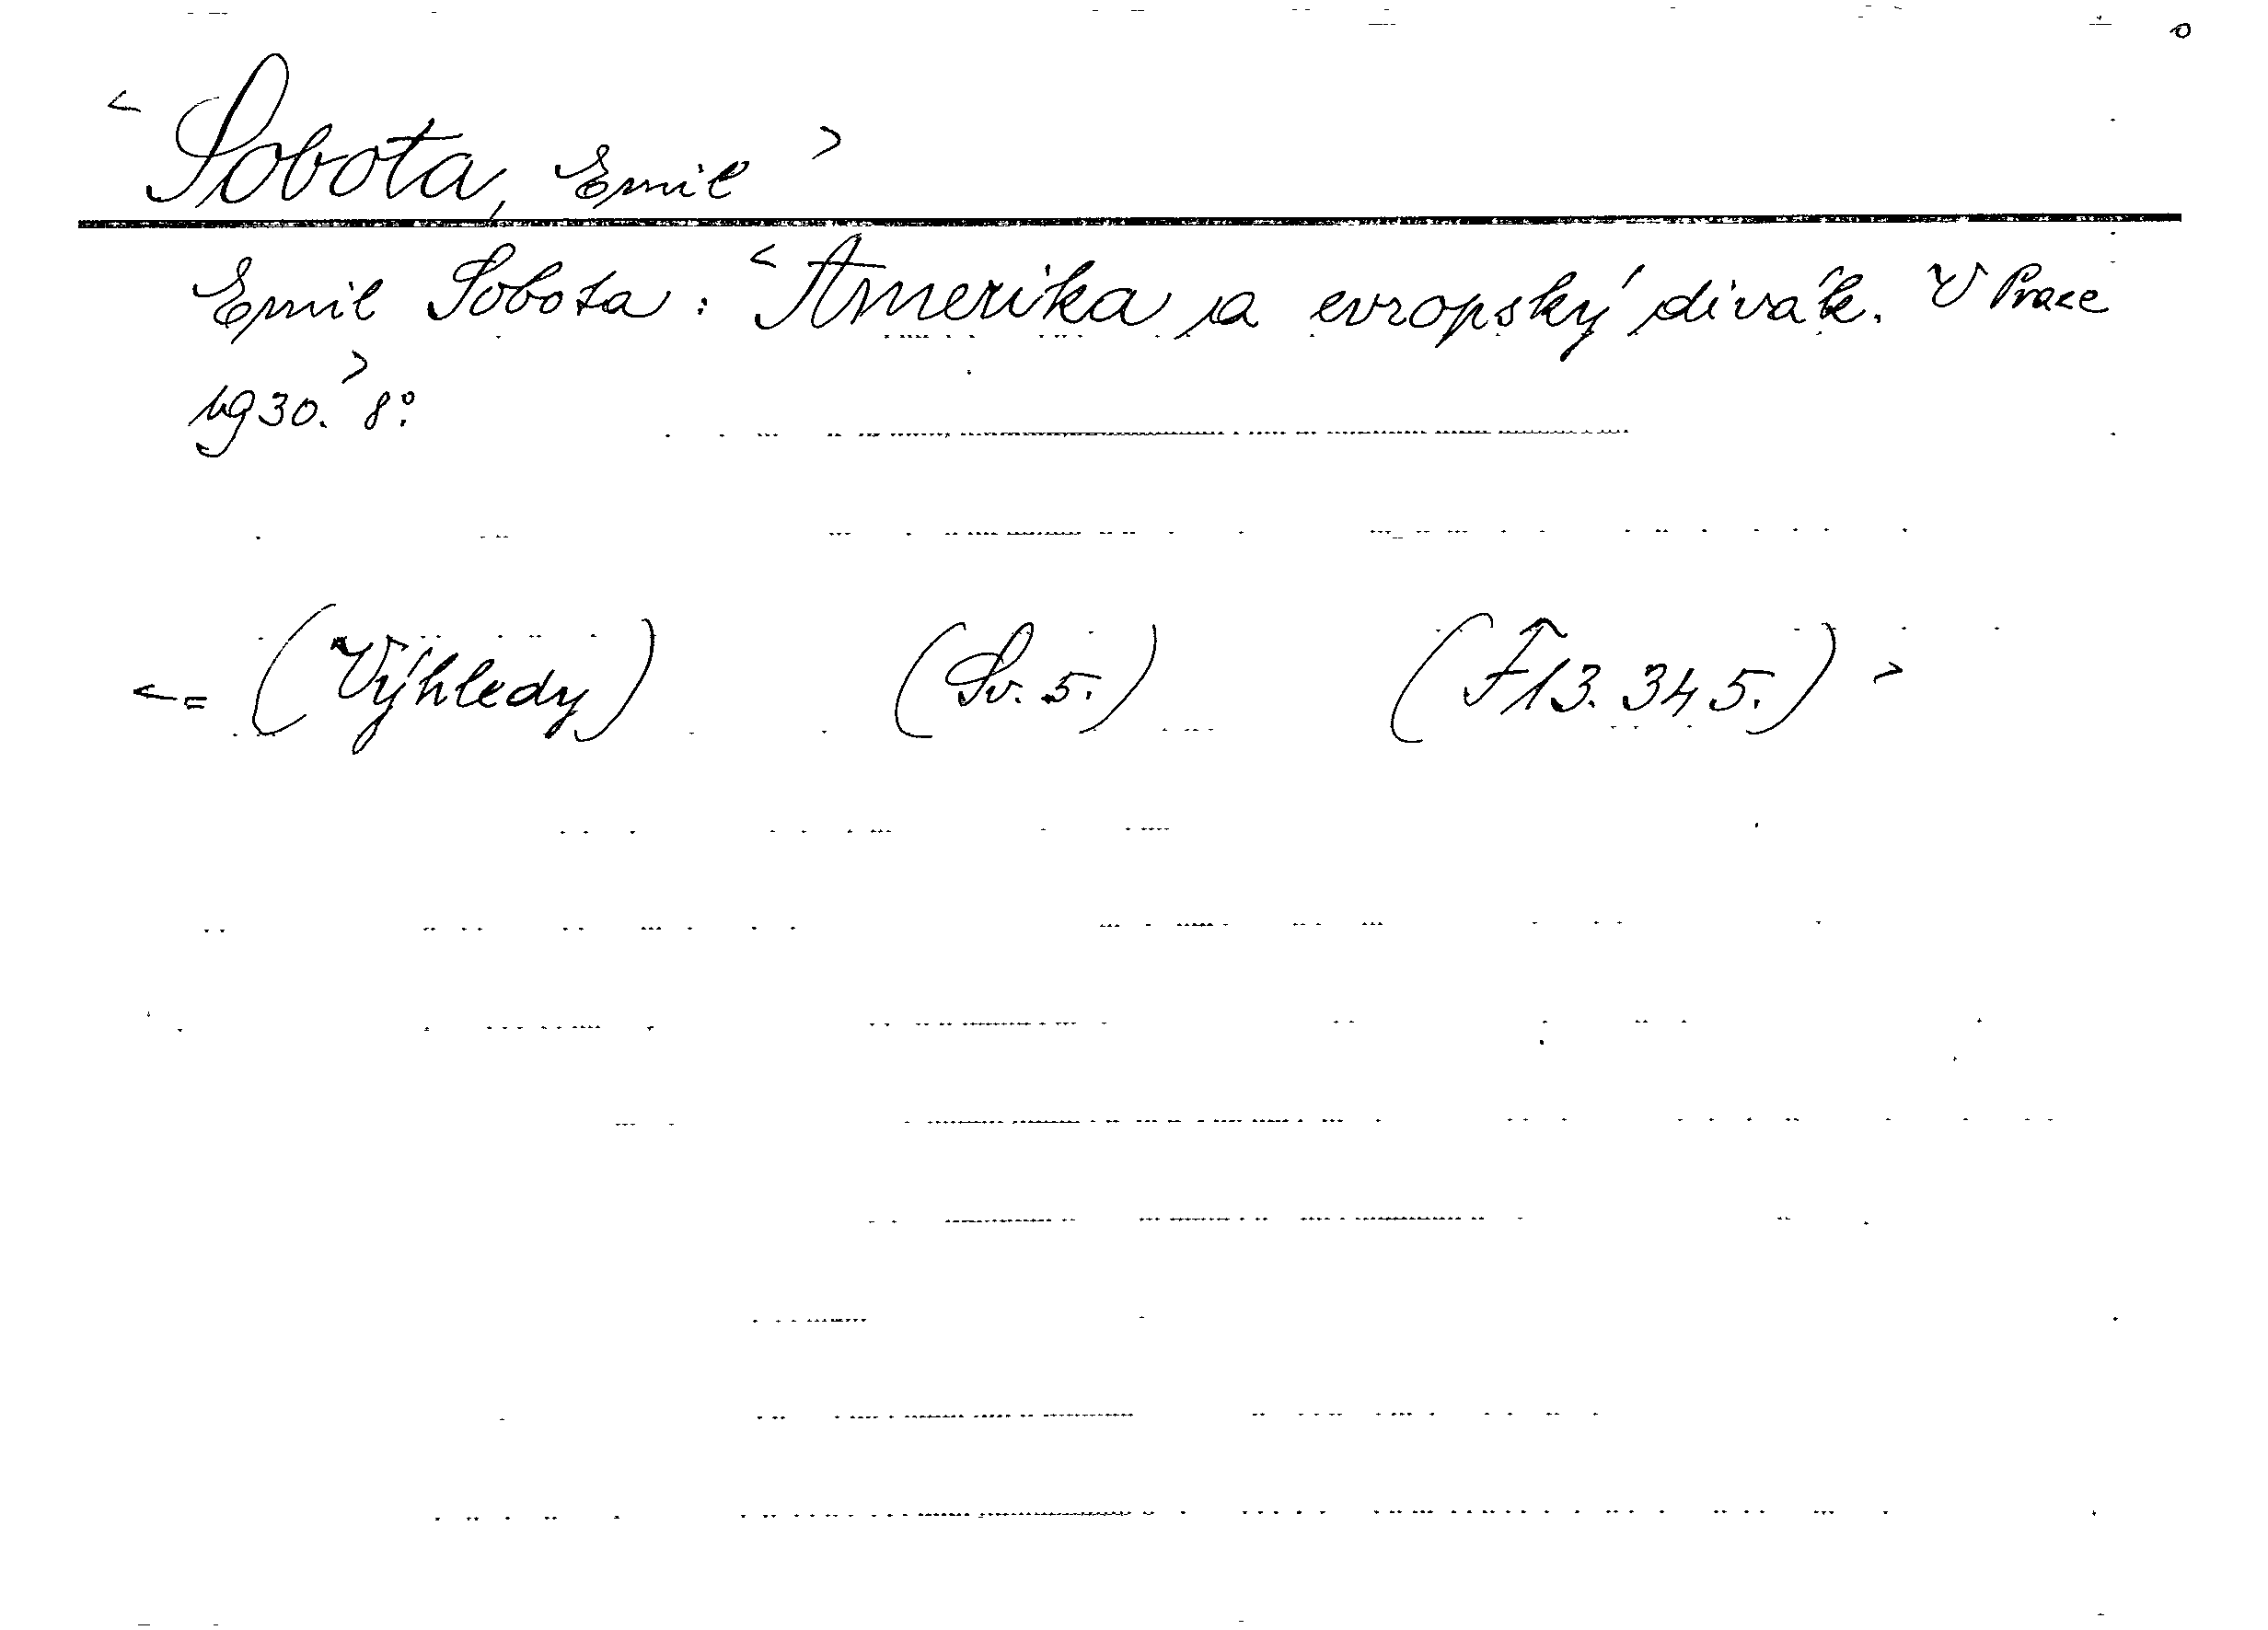 < Sobota, Emil >
Emil Sobota: < Amerika a evropský divák. V Praze
1930. > 8°.
< = (Výhledy) (Sv. 5.) (F13.345.) >